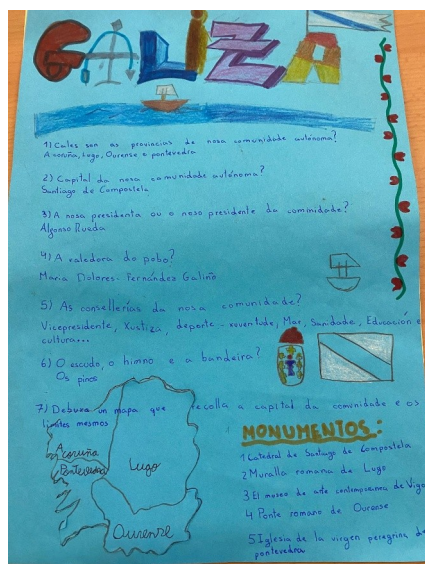 GALIZA
1) Cales son as provincias de nosa comunidade autónoma?
A coruña, Lugo, Ourense e pontevedra
2) Capital da nosa comunidade autónoma?
Santiago de Compostela
3) A nosa presidenta ou o noso presidente da comunidade?
Alfonso Rueda
4) A valedora do pobo?
Maria Dolores Fernández Galiño
5) As consellerías da nosa comunidade?
Vicepresidente, Xustiza, deporte - xuventude, Mar, Sanidade, Educación e
cultura...
6) O escudo, o himno e a bandeira?
Os pinos
7) Debuxa un mapa que recolla a capital da comunidade e os
limites mesmos
A coruña
Pontevedra
Lugo
Ourense
MONUMENTOS:
1 Catedral de Santiago de Compostela
2 Muralla romana de Lugo
3 El museo de arte contemporanea de Vigo
4 Ponte romano de Ourense
5 Iglesia de la virgen peregrina de
pontevedra